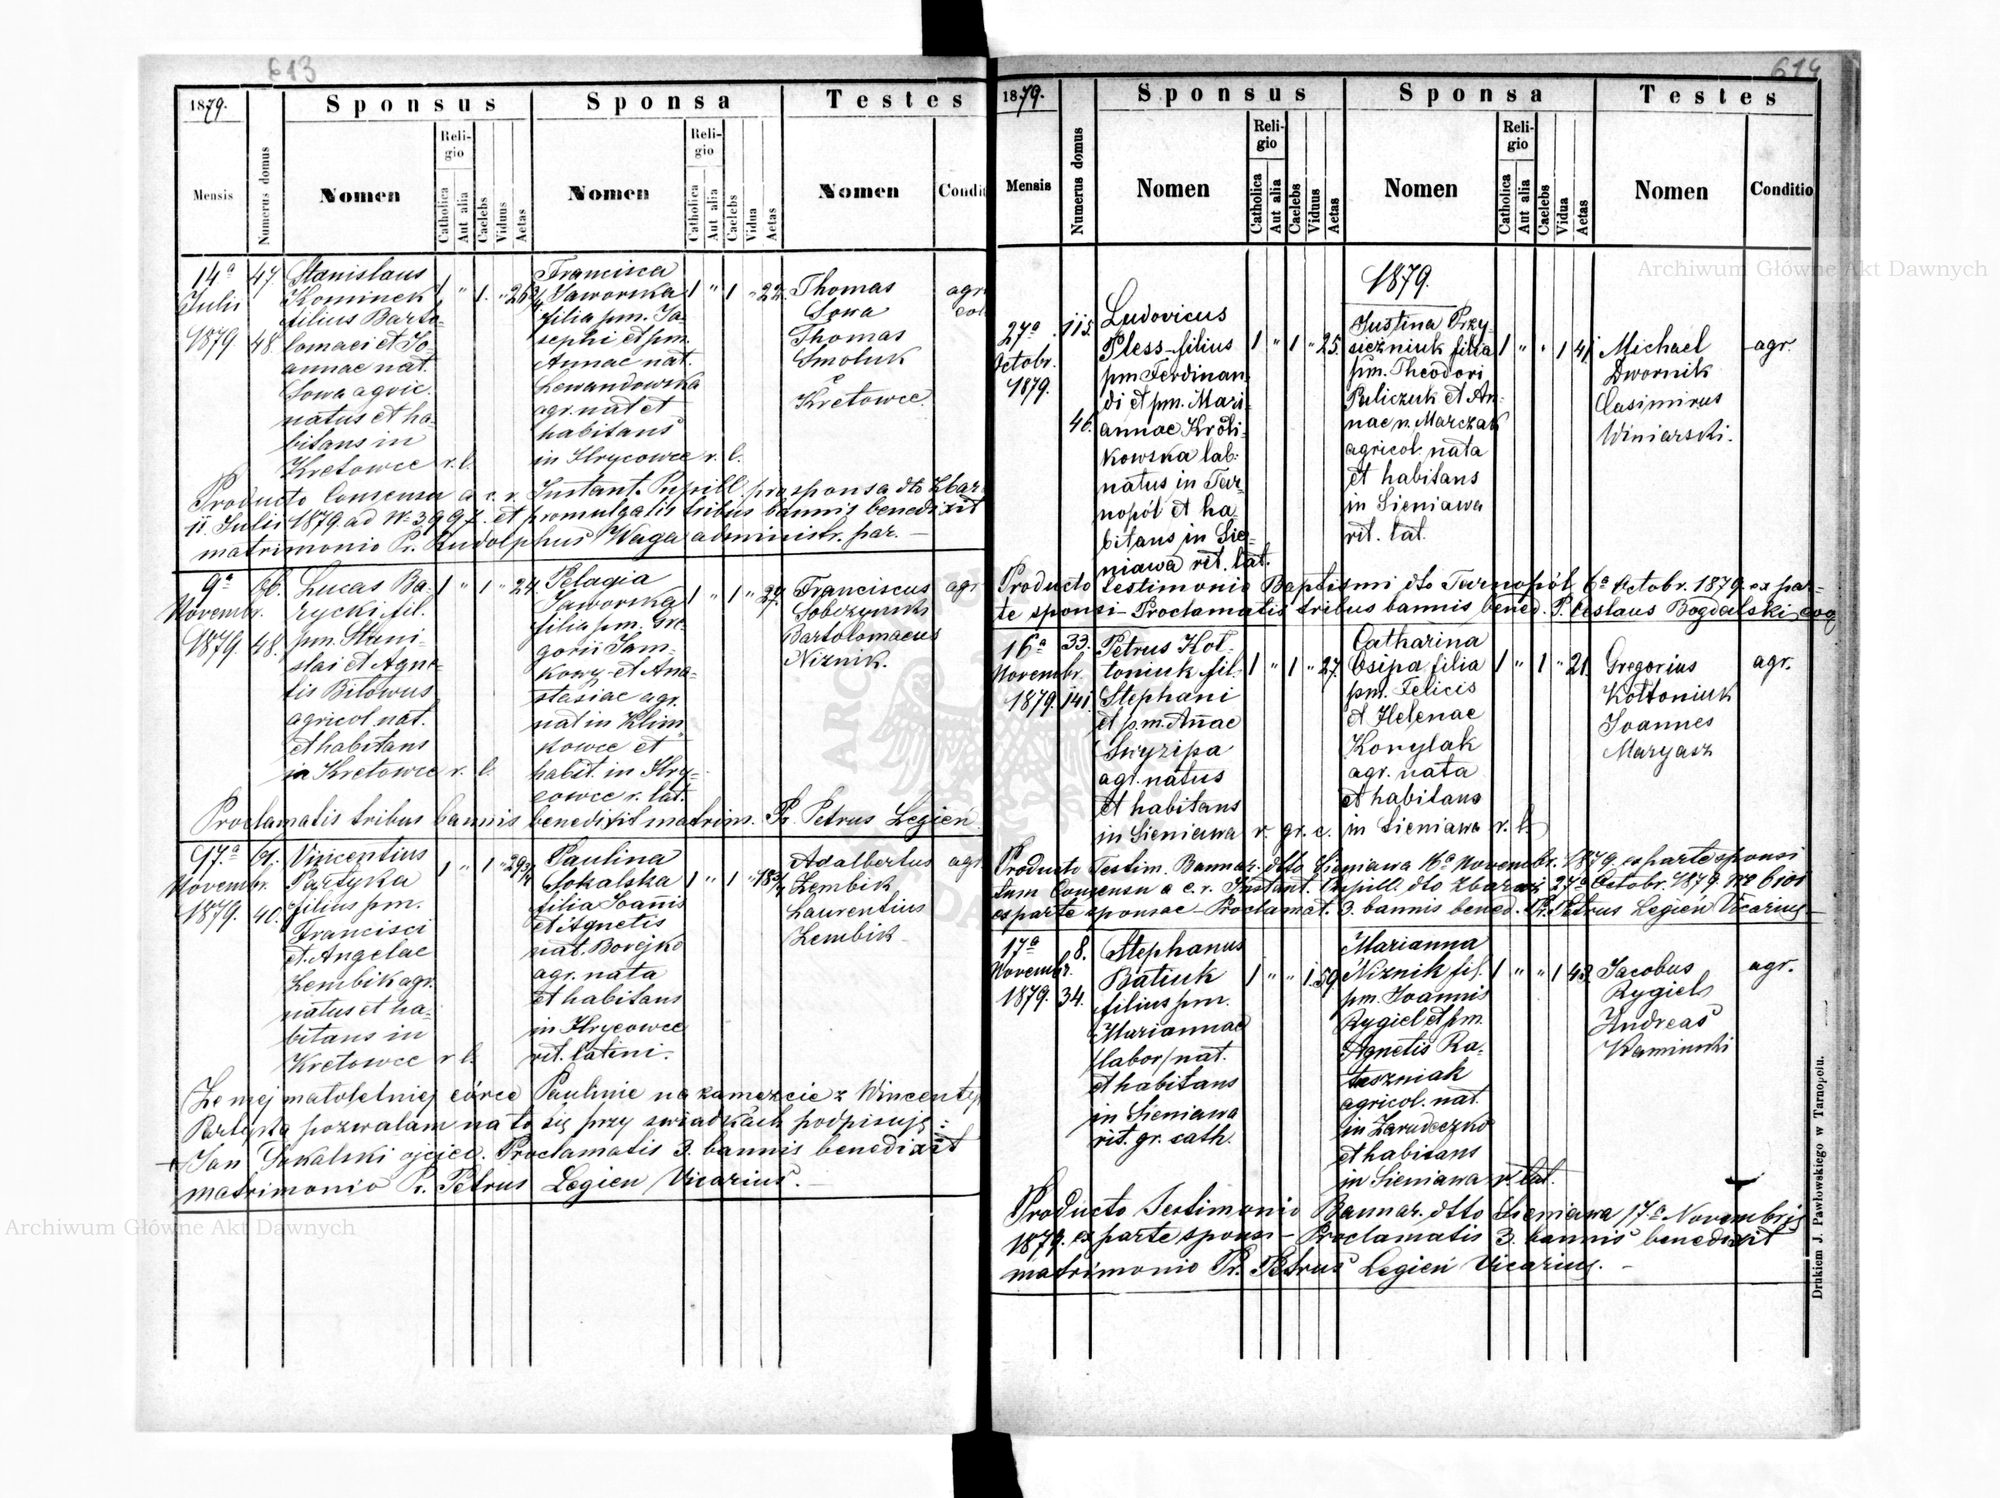 613
1879.
Mensis
Numerus domus
Sponsus
Nomen
Religio
Catholica
Aut alia
Caelebs
Viduus
Aetas
Sponsa
Nomen
Religio
Catholica
Aut alia
Caelebs
Vidua
Aetas
Testes
Nomen
Condit
14ª
Julii
1879
47
48
Stanislaus
Kominek
filius Barto-
lomaei et Jo-
annae nat.
Sowa agric.
natus et ha-
bitans in
Kretowce r. l.
1 " 1. " 26¾
Francisca
Jaworska
filia pm. Jo-
sephi et pm.
Annae nat.
Lewandowska
agr. nat et
habitans
in Hrycowce r. l.
1 " 1 " 22.
Thomas
Sowa
Thomas
Smoluk
Kretowce
agr
Producto Consensu a c. r. Instant. Pupill. pro sponsa dto Zbar
11. Julii 1879 ad Nº 3997. et promulgatis tribus bannis benedixit
matrimonio Pr. Rudolphus Waga administr. par. —
9ª
Novembr.
1879.
66.
48.
Lucas Ba-
rycki fil.
pm. Stani-
slai et Agne-
tis Bitowus
agricol. nat.
et habitans
in Kretowce r. l.
1 " 1 " 24.
Pelagia
Jaworska
filia pm. Gre-
gorii Jam-
kowy et Ana-
stasiae agr.
nat in Klim-
kowce et
habit. in Hry-
cowce r. lat.
1 " 1 " 27.
Franciscus
Sobczynski
Bartolomaeus
Niznik.
agr
Proclamatis tribus bannis benedixit matrim. Pr. Petrus Legień
17.ª
Novembr.
1879.
61.
40.
Vincentius
Partyka
filius pm.
Francisci
et Angelae
Zembik agr.
natus et ha-
bitans in
Kretowce r. l.
1 " 1 " 29¾
Paulina
Sokalska
filia Joanis
et Agnetis
nat. Borejko
agr. nata
et habitans
in Hrycowce
rit. latini.
1 " 1 " 18¾
Adalbertus
Zembik
Laurentius
Zembik
agr
Że mej małoletniej córce Paulinie na zamęzcie z Wincentym
Partyką pozwalam na to się przy swiadkach podpisuję:
+ Jan Sokalski ojciec. Proclamatis 3. bannis benedixit
matrimonio Pr. Petrus Legien Vicarius. —
614
1879.
Mensis
Numerus domus
Sponsus
Nomen
Religio
Catholica
Aut alia
Caelebs
Viduus
Aetas
Sponsa
Nomen
Religio
Catholica
Aut alia
Caelebs
Vidua
Aetas
Testes
Nomen
Conditio
1879.
27ª
Octobr.
1879.
115.
46.
Ludovicus
Pless filius
pm Ferdinan-
di et pm. Mari-
annae Króli-
kowska lab.
natus in Tar-
nopól et ha-
bitans in Sie-
niawa rit. lat.
1 " 1 " 25.
Justina Przy-
siezniuk filia
pm. Theodori
Buliczuk et An-
nae n. Marczak
agricol. nata
et habitans
in Sieniawa
rit. lat.
1 " " 1 41
Michael
Dwornik
Casimirus
Winiarski.
agr.
Producto Testimonio Baptismi dto Tarnopól 6ª Octobr. 1879. ex par-
te sponsi — Proclamatis tribus bannis bened. P. Ceslaus Bogdalski coo
16ª
Novembr.
1879.
33.
141.
Petrus Koł-
toniuk fil.
Stephani
et pm. Añae
Swyripa
agr. natus
et habitans
in Sieniawa r. gr. c.
1 " 1 " 27.
Catharina
Osipa filia
pm. Felicis
et Helenae
Konylak
agr. nata
et habitans
in Sieniawa r. l.
1 " 1 " 21.
Gregorius
Kołtoniuk
Joannes
Maryasz
agr.
Producto Testim. Bannar. dtto Sieniawa 16ª Novembr. 1879. ex parte sponsi
tum Consensu a c. r. Instant. Pupill. dto Zbaraż 27ª Octobr. 1879. Nº 6101
ex parte sponsae — Proclamat. 3. bannis bened. Pr. Petrus Legień Vicarius —
17ª
Novembr.
1879.
8.
34.
Stephanus
Batiuk
filius pm.
Mariannae
/labor/ nat.
et habitans
in Sieniawa
rit. gr. cath.
1 " " 1. 59.
Marianna
Niznik fil.
pm. Joannis
Rygiel et pm.
Agnetis Ra-
taszniak
agricol. nat.
in Zarudeczko
et habitans
in Sieniawa r. lat.
1 " " 1 43.
Jacobus
Rygiel
Andreas
Kaminski
agr.
Producto Testimonio Bannar. dtto Sieniawa 17ª Novembris
1879. ex parte sponsi — Proclamatis 3. bannis benedixit
matrimonio Pr. Petrus Legień Vicarius. —
Drukiem J. Pawłowskiego w Tarnopolu.
Archiwum Główne Akt Dawnych
Archiwum Główne Akt Dawnych